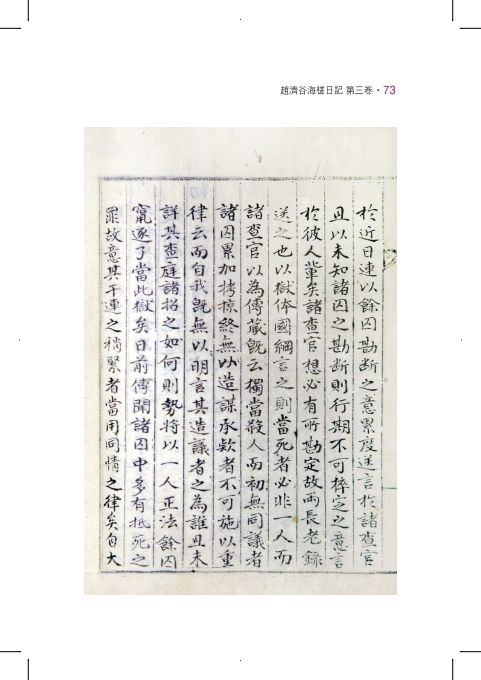 趙濟谷海槎日記 第三卷 • 73
於近日連以餘囚勘斷之意累度送言於諸查官
且以未知諸囚之勘斷則行期不可梓定之意言
於彼人輩矣諸查官想必有所勘定故兩長老錄
送之也以獄体國綱言之則當死者必非一人而
諸查官以為傳藏旣云獨當殺人而初無同議者
諸囚累加拷掠終無以造謀承欵者不可施以重
律云而自我旣無以明言其造議者之為誰且未
詳其查庭諸招之如何則勢將以一人正法餘囚
竄逐了當此獄矣日前傳聞諸囚中多有抵死之
罪故意其干連之稍緊者當用同情之律矣自大